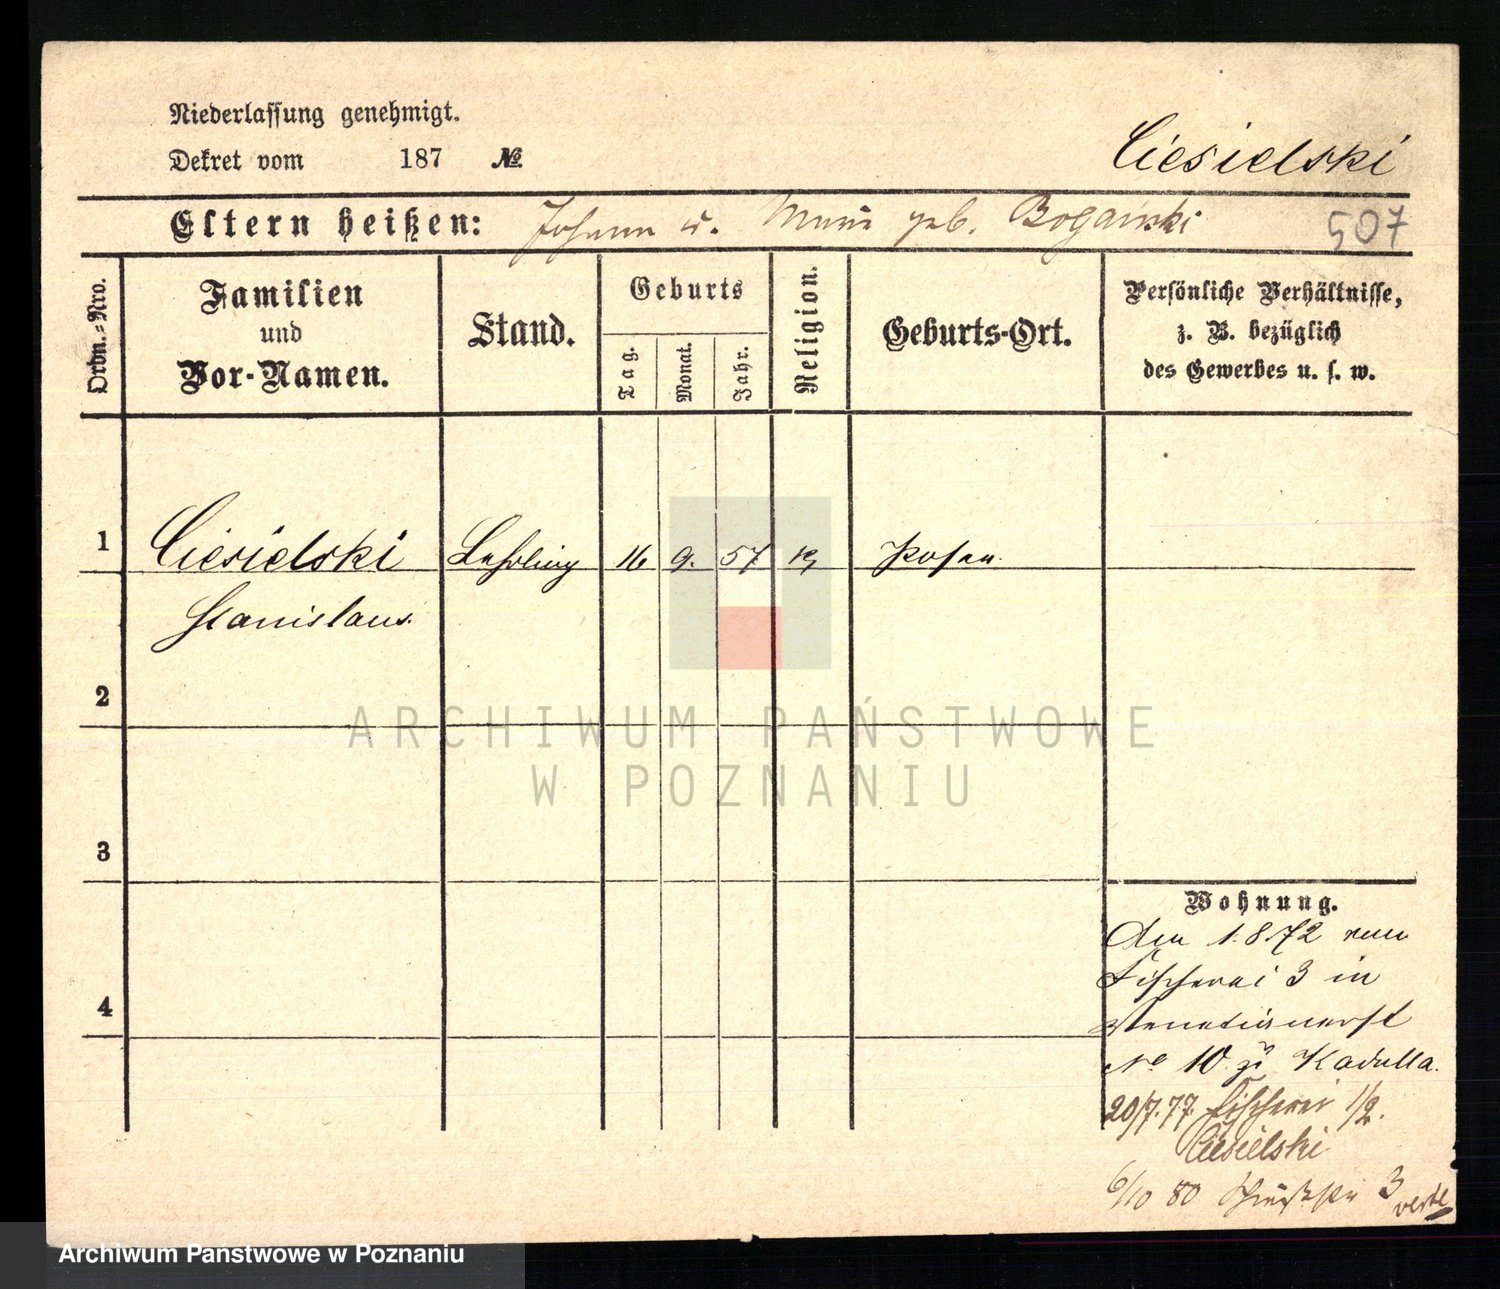 Niederlassung genehmigt.
Dekret vom 187 №
Ciesielski
Eltern heißen: Johann u. Marie geb. Bogainski
507
Ordn.-Nro.
Familien
und
Vor-Namen.
Stand.
Geburts
Tag.
Monat.
Jahr.
Religion.
Geburts-Ort.
Persönliche Verhältnisse,
z. B. bezüglich
des Gewerbes u. s. w.
1 Ciesielski Lehrling 16 9. 57 K Posen.
Stanislaus.
2
3
4
Wohnung.
Am 1.8.72 von
Fischerei 3 in
Venetianerst
No 10 zu Kadulla.
20/7.77. Fischerei 1/2.
Ciesielski
6/10 80 3 verte
ARCHIWUM PAŃSTWOWE
W POZNANIU
Archiwum Państwowe w Poznaniu